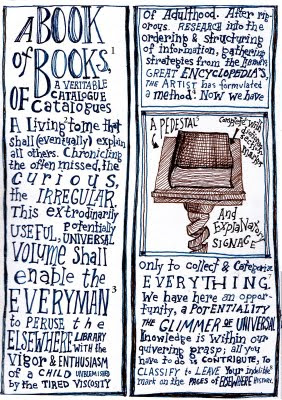 A BOOK
of BOOKS,¹
A VERITABLE
CATALOGUE
OF CATALOGUES
A Living² tome that
shall (eventually) explain
all others. Chronicling
the often missed, the
curious,
the IRREGULAR.
This extrodinarily
USEFUL, potentially
UNIVERSAL
VOLUME Shall
enable the
EVERYMAN³
TO PERUSE the
ELSEWHERE LIBRARY
WITH the
Vigor & ENTHUSIASM
of a CHILD
by the TIRED VISCOSITY
Of Adulthood. After rig-
orous RESEARCH into the
ordering & structuring
of information, gathering
strategies from the
GREAT ENCYCLOPEDIA'S,
THE ARTIST has formulated
a method. Now we have
A PEDESTAL
Complete with
And
Explanatory
SIGNAGE
only to collect & Categorize
EVERYTHING.
We have here an oppor-
tunity, a POTENTIALITY
THE GLIMMER of UNIVERSAL
Knowledge is within our
quivering grasp; all you
have to do is CONTRIBUTE, TO
CLASSIFY to LEAVE Your indelible
mark on the PAGES of ELSEWHERE History.